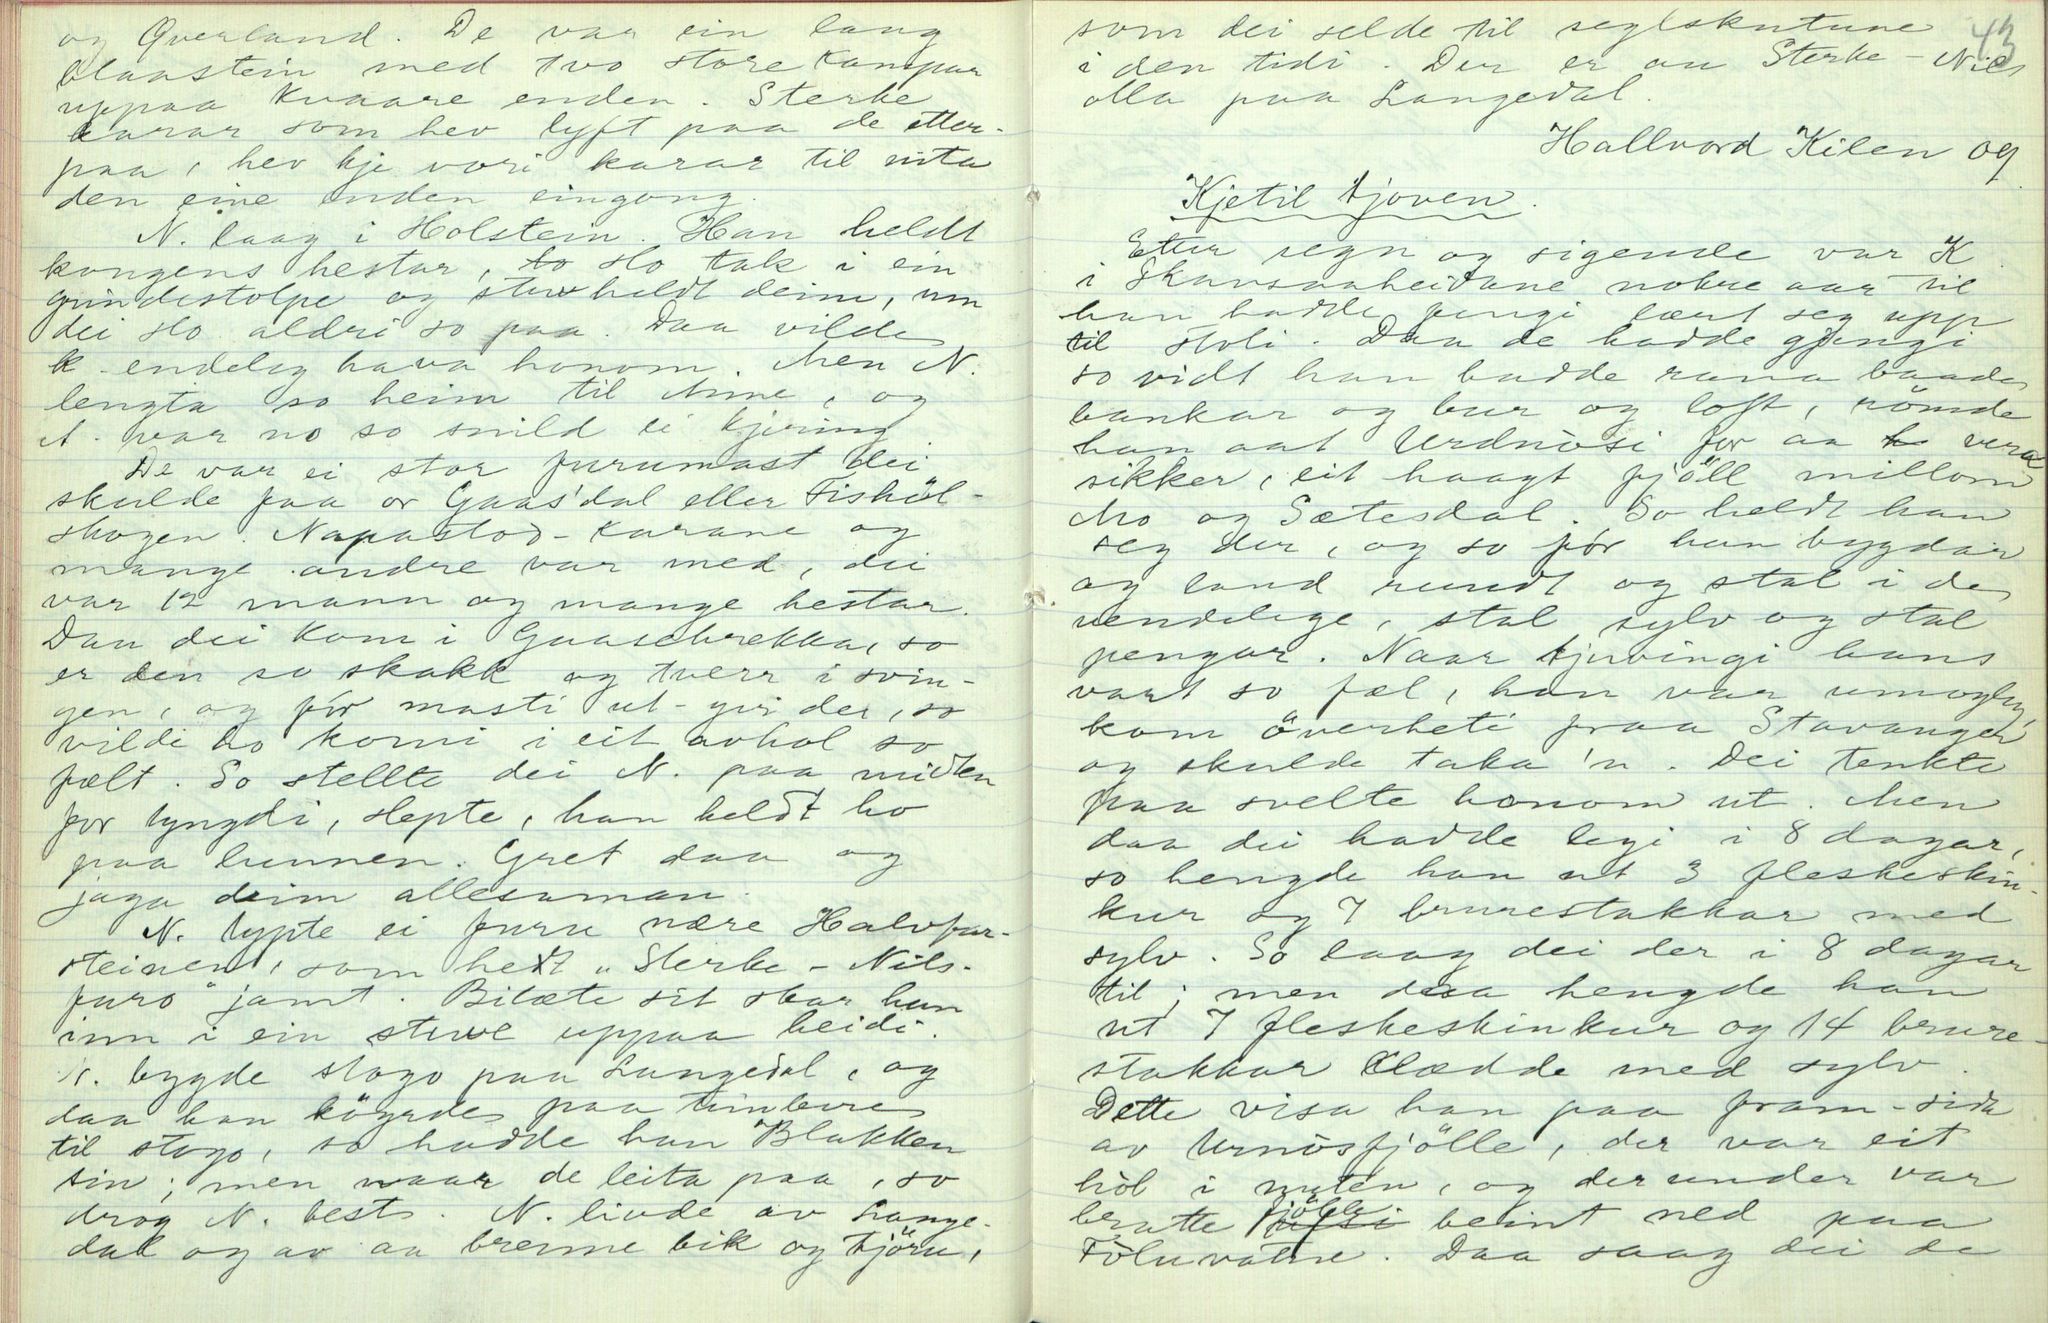 og Qverland. De var ein lang
blaastein med tvo store kampar
uppaa kvaare enden. Sterke
karar som hev lyft paa de etter-
paa, hev kje vori karar til nita
den eine enden eingong.
N. laag i Holstein. Han heldt
kongens hestar, to slo tak i ein
grindestolpe og heldt deim, um
dei slo aldri so paa. Daa vilde
k. endeleg hava honom. Men N.
lengta so heim til Anne, og
A. var no so snild ei kjering.
De var ei stor furumast dei
skulde faa or Gaas'dal eller Fishöl-
skogen. Napastod-karane og
mange andre var med, dei
var 12 mann og mange hestar.
Daa dei kom i Gaasebrekka, so
er den so skakk og tverr i svin-
gen, og fór masti ut-yvi der, so
vilde ho komi i eit avhol so
fælt. So stellte dei N. paa midten
for tyngdi, slepte, han heldt ho
paa lunnen. Gret daa og
jaga deim allesaman.
N. lypte ei furu nære Halvfar-
steinen, som hedt "Sterke-Nils-
furo" jamt. Bilæte sit skar han
inn i ein stuve uppaa heidi.
N. bygde stogo paa Langedal, og
daa han köyrde paa timbere
til stogo, so hadde han Blakken
sin; men naar de leita paa, so
drog N. best. N. livde av Lange-
dal og av aa brenne bik og tjöru,
43
som dei selde til seglskutune
i den tidi. Der er au Sterke-Nils
olla paa Langedal.
Hallvord Kilen og
Kjetil tjoven.
Etter segn og sigende var K.
i Skarsaaheidane nokre aar til
han hadde fengi lært seg upp
til stoli. Daa de hadde gjengi
so vidt han hadde rana baade
bankar og bur og loft, römde
han aat Urdnösi for aa vera
sikker, eit haagt fjöll millom
Mo og Sætesdal. So heldt han
seg der, og so fór han bygdar
og land rundt og stal i de
uendelege, stal sylv og stal
pengar. Naar tjuvingi hans
vart so fæl, han var umogleg,
kom överheti fraa Stavanger
og skulde taka 'n. Dei tenkte
paa svelte honom ut. Men
daa dei hadde legi i 8 dagar,
so hengde han ut 3 fleskeskin-
kur og 7 brurestakkar med
sylv. So laag dei der i 8 dagar
til; men daa hengde han
ut 7 fleskeskinkur og 14 brure-
stakkar klædde med sylv.
Dette visa han paa fram-sida
av Urnösfjölle, der var eit
hòl i nuten, og derunder var
bratte fjölle beint ned paa
Föluvatne. Daa saag dei de